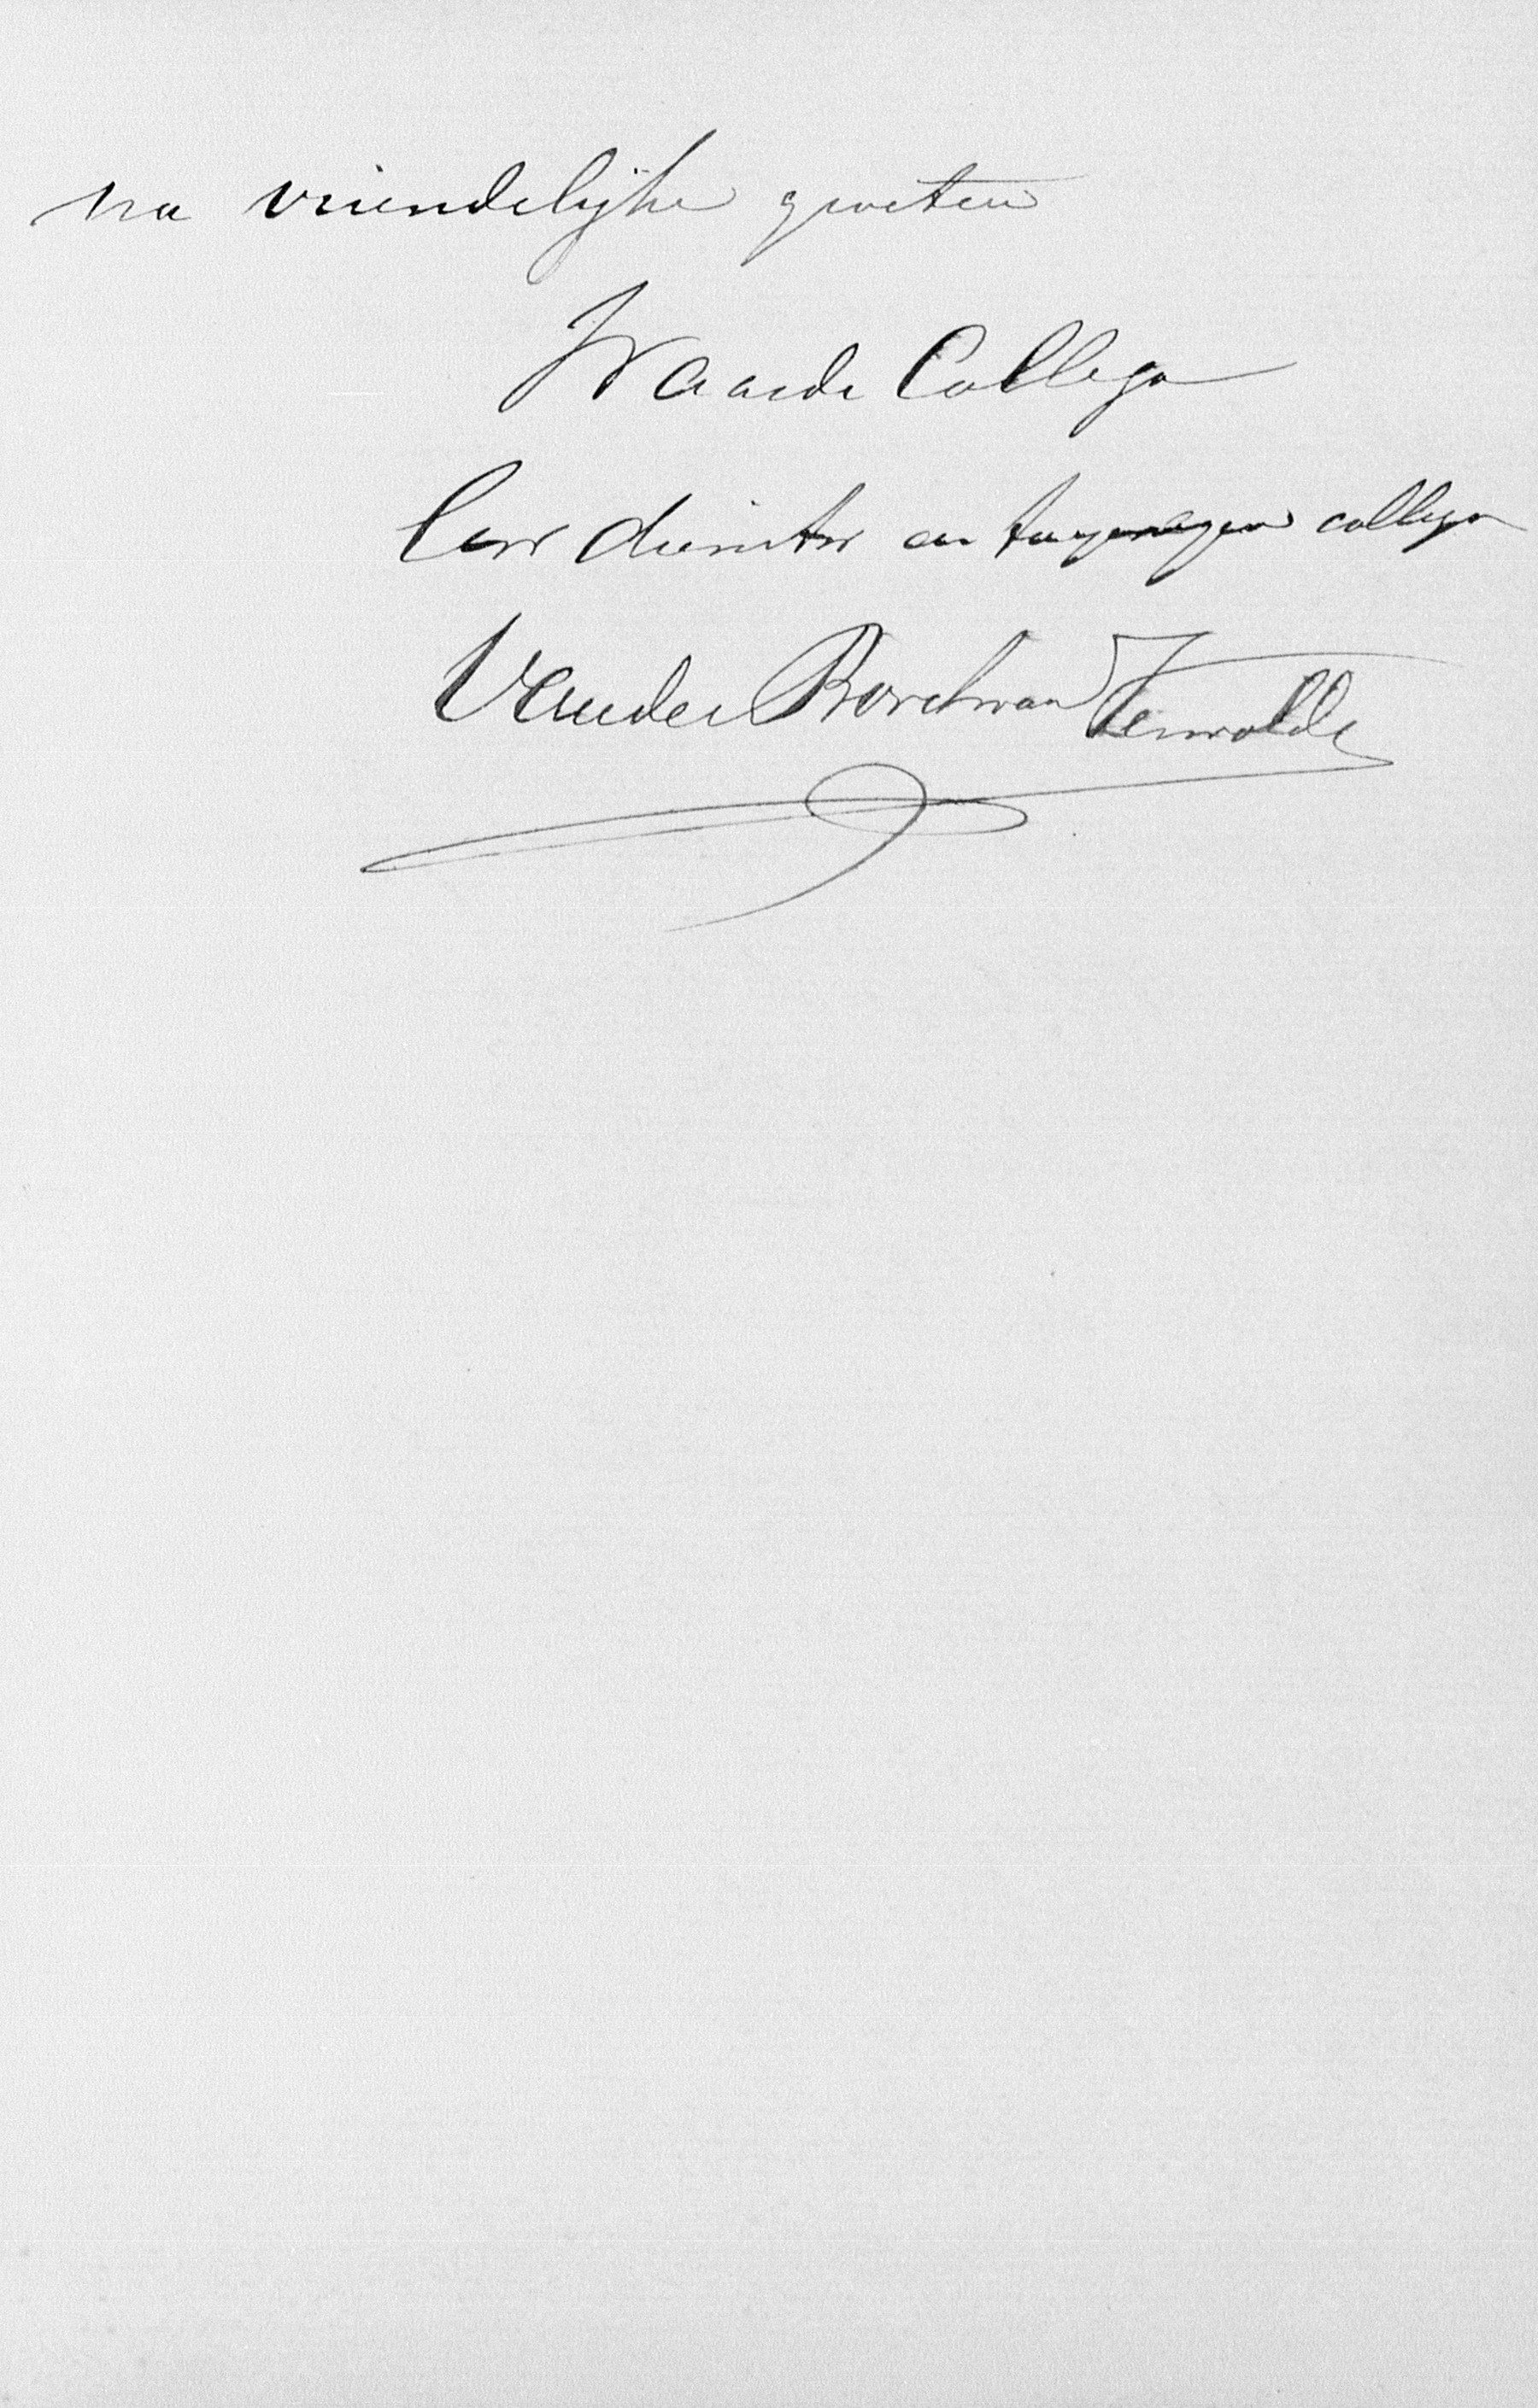 na vriendelijke groeten
Waarde Collega
Uw dienstw en toegenegen collega
Van der Borch van Verwolde